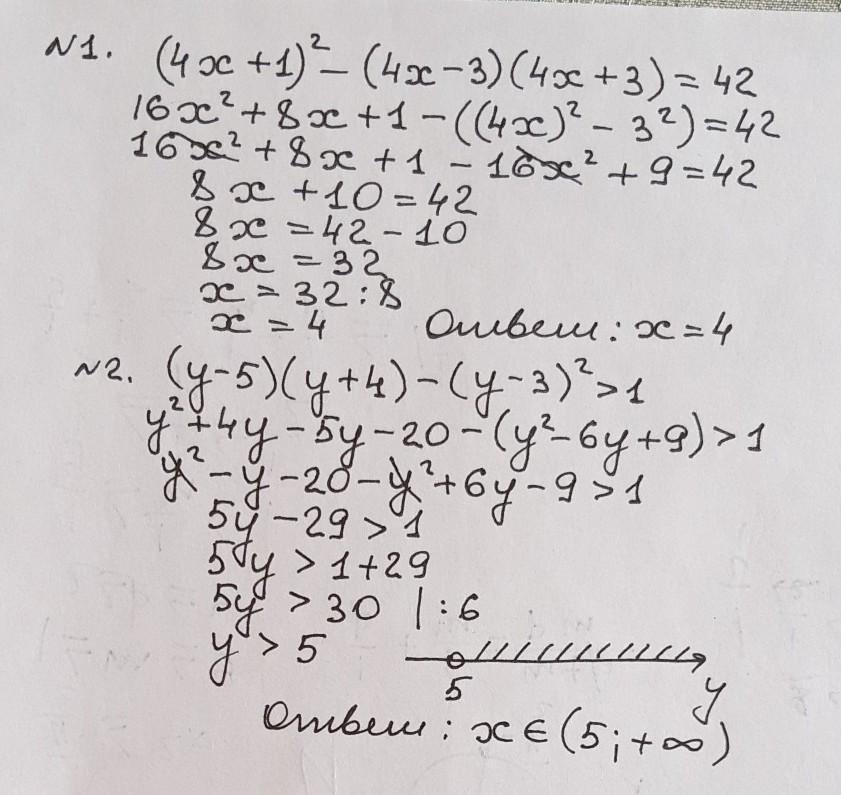 №1. (4x+1)² - (4x-3)(4x+3) = 42
16x² + 8x + 1 - ((4x)² - 3²) = 42
16x² + 8x + 1 - 16x² + 9 = 42
8x + 10 = 42
8x = 42 - 10
8x = 32
x = 32 : 8
x = 4 Ответ: x = 4
№2. (y-5)(y+4) - (y-3)² > 1
y² + 4y - 5y - 20 - (y² - 6y + 9) > 1
y² - y - 20 - y² + 6y - 9 > 1
5y - 29 > 1
5y > 1 + 29
5y > 30 | : 6
y > 5
5 y
Ответ: x ∈ (5; +∞)